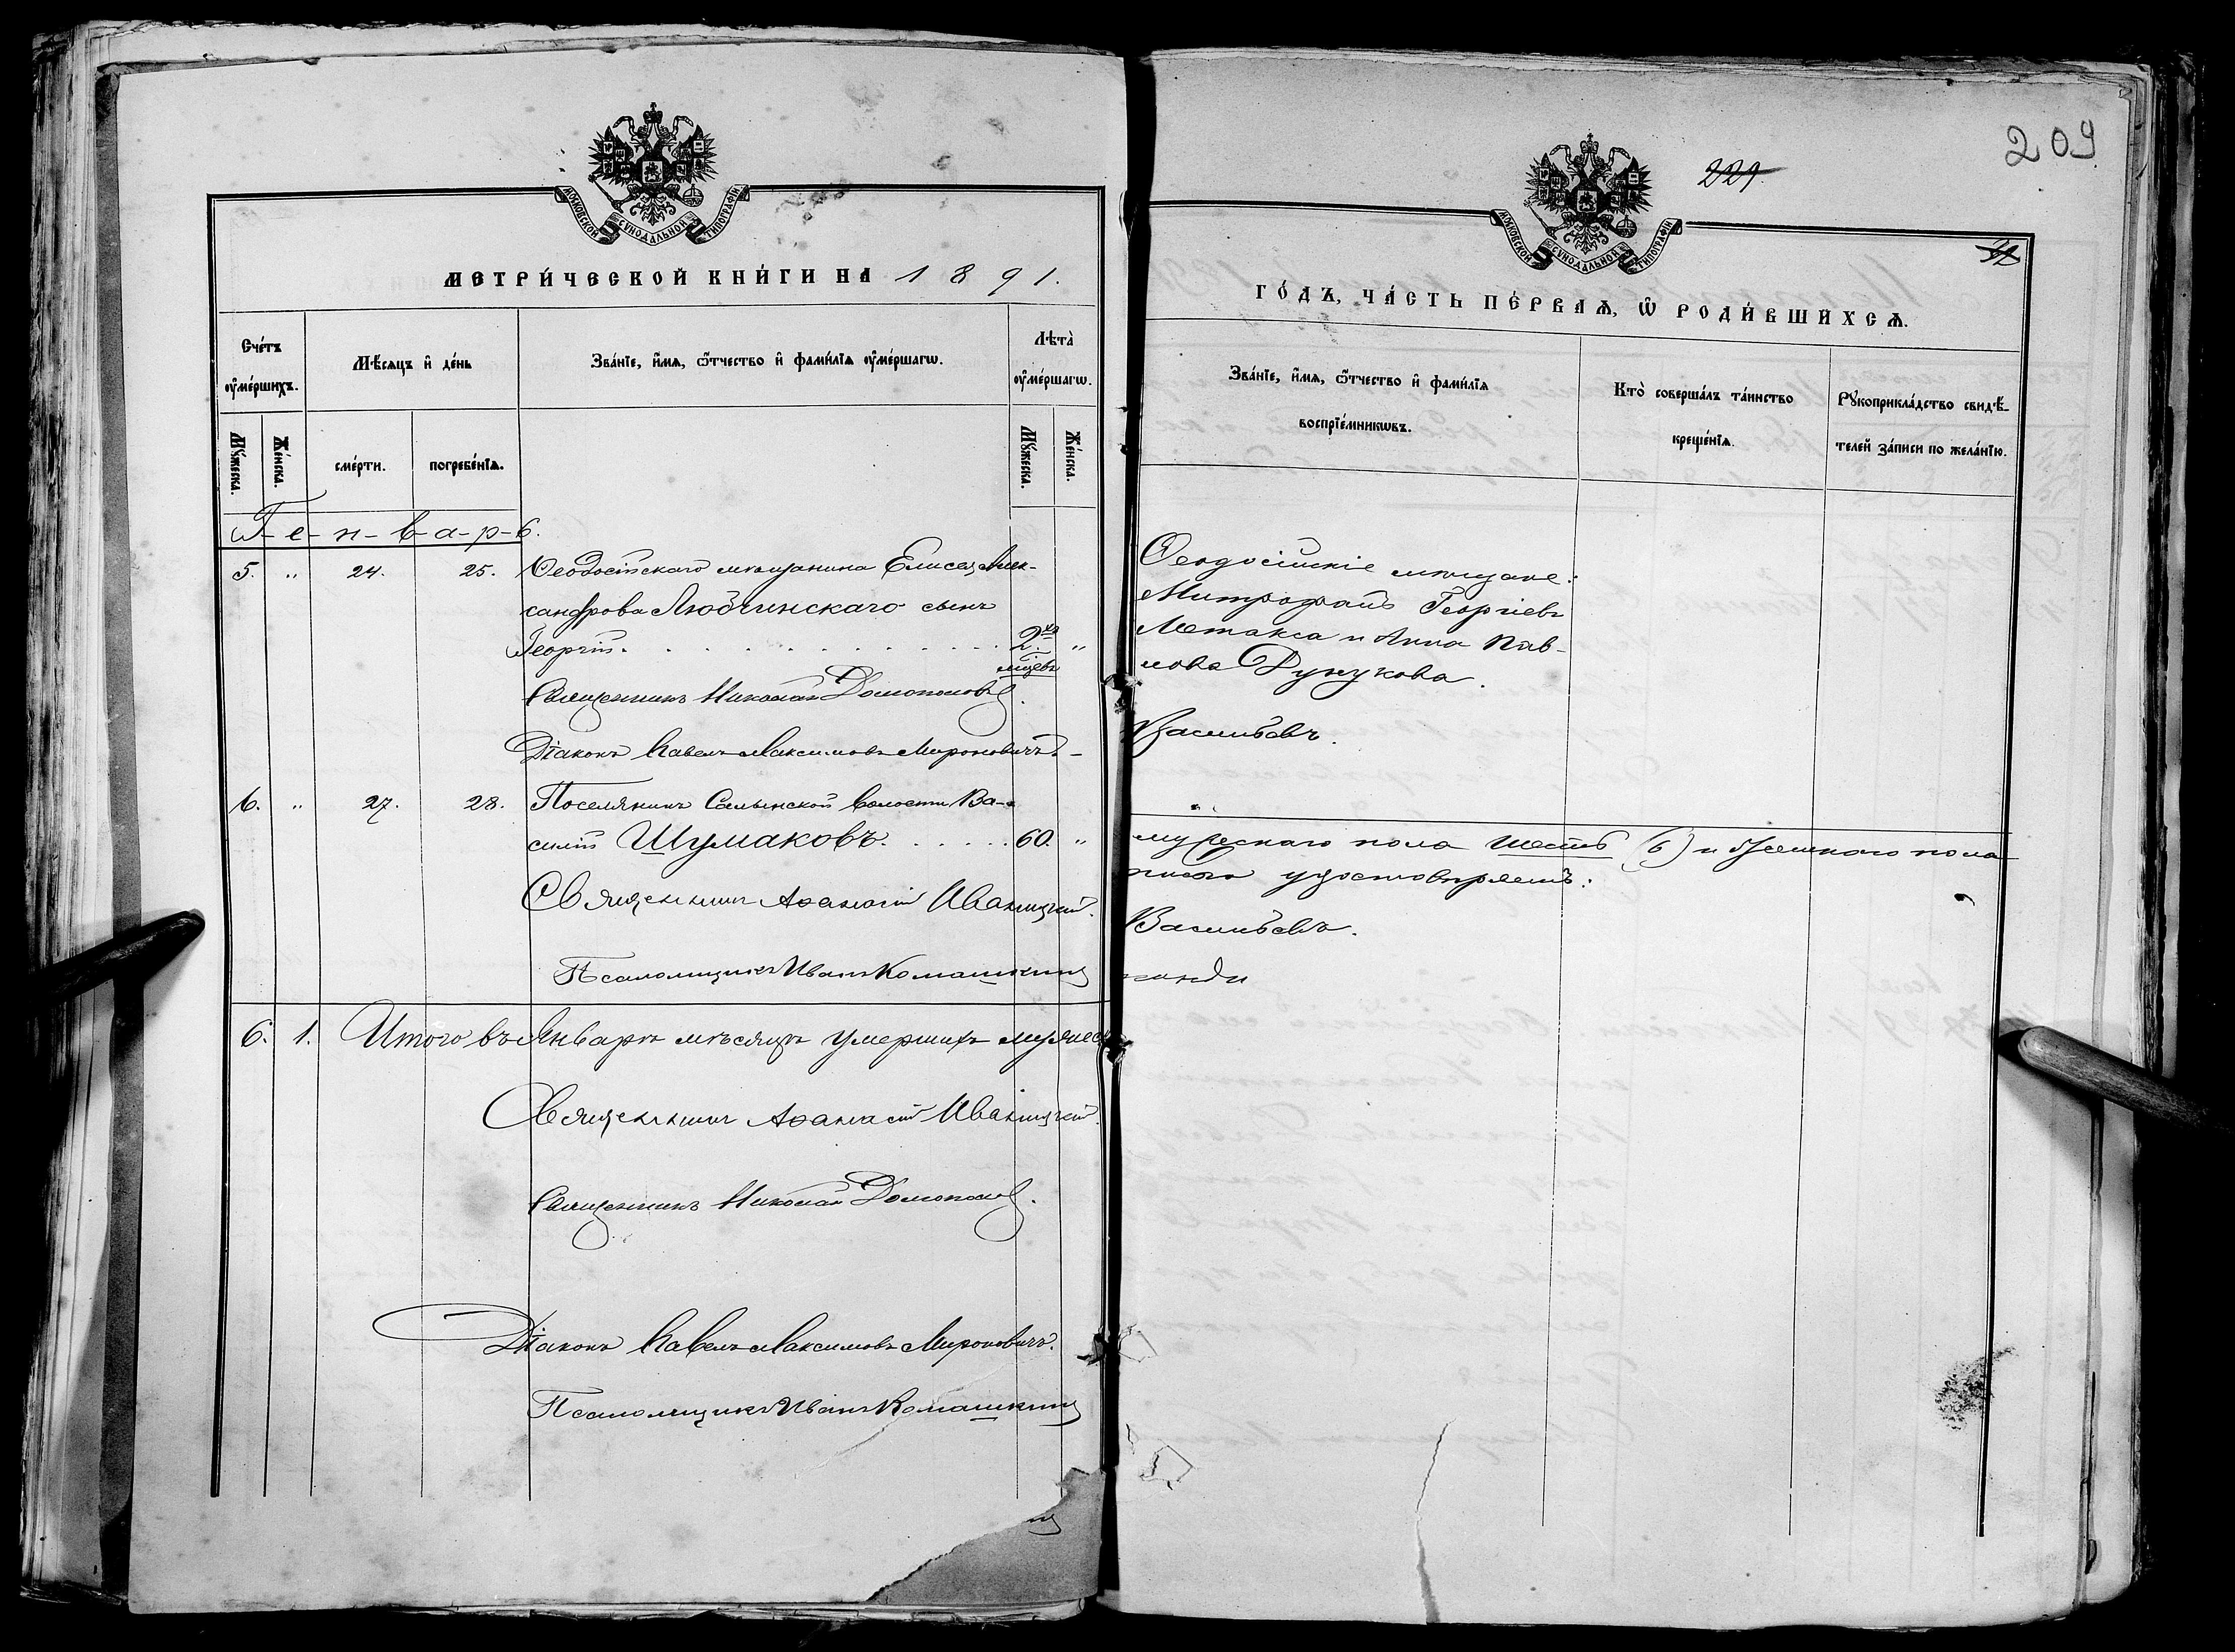 МОСКОВСКОЙ СУНОДАЛЬНОЙ ТИПОГРАФІИ
МЕТРИ́ЧЕСКОЙ КНИ́ГИ НА 1891.
Сче́тъ ᲂу҆ме́ршихъ.
Мѣ́сяцъ и҆ де́нь
Зва́нїе, и҆́мя, ѻ҆́тчество и҆ фами́лїя ᲂу҆ме́ршагѡ.
Лѣта̀ ᲂу҆ме́ршагѡ.
Мꙋ́жеска.
Же́нска.
сме́рти.
погребе́нїѧ.
Мꙋ́жеска.
Же́нска.
Г-е-н-в-а-р-ь.
5. " 24. 25. Ѳеодосійскаго мѣщанина Елисея Алек-
сандрова Любчинскаго сынъ
Георгій. 2хъ "
мѣсцевъ
Священникъ Николай Домонолов
Діаконъ Павелъ Максимовъ Мироновичъ.
6. " 27. 28. Поселянинъ Салынской волости Ва-
силій Шумаковъ. 60. "
Священникъ Аѳанасій Иваницкій.
Псаломщикъ Иванъ Комашкинъ
6. 1. Итого въ Январѣ мѣсяцѣ умершихъ мужеск
Священникъ Аѳанасій Иваницкій.
Священникъ Николай
Діаконъ Павелъ Максимовъ Мироновичъ.
Псаломщикъ Иванъ Комашкинъ
209
221
МОСКОВСКОЙ СУНОДАЛЬНОЙ ТИПОГРАФІИ
ГО́ДЪ, ЧА́СТЬ ПЕ́РВАѦ, Ѡ҆ РОДИ́ВШИХСѦ.
Зва́нїе, и҆́мя, ѻ҆́тчество и҆ фами́лїя
воспрїе́мникѡвъ.
Кто̀ соверша́лъ та́инство
креще́нїѧ.
Рꙋкоприкла́дство свидѣ́-
телей за́писи по жела́нїю.
Ѳеодосійскіе мѣщане:
Митрофанъ Георгіевъ
Метакса и Анна Пав-
лова Дунукова.
Васильевъ.
мужескаго пола шесть (6) и женскаго пола
удостовѣряемъ:
Васильевъ.